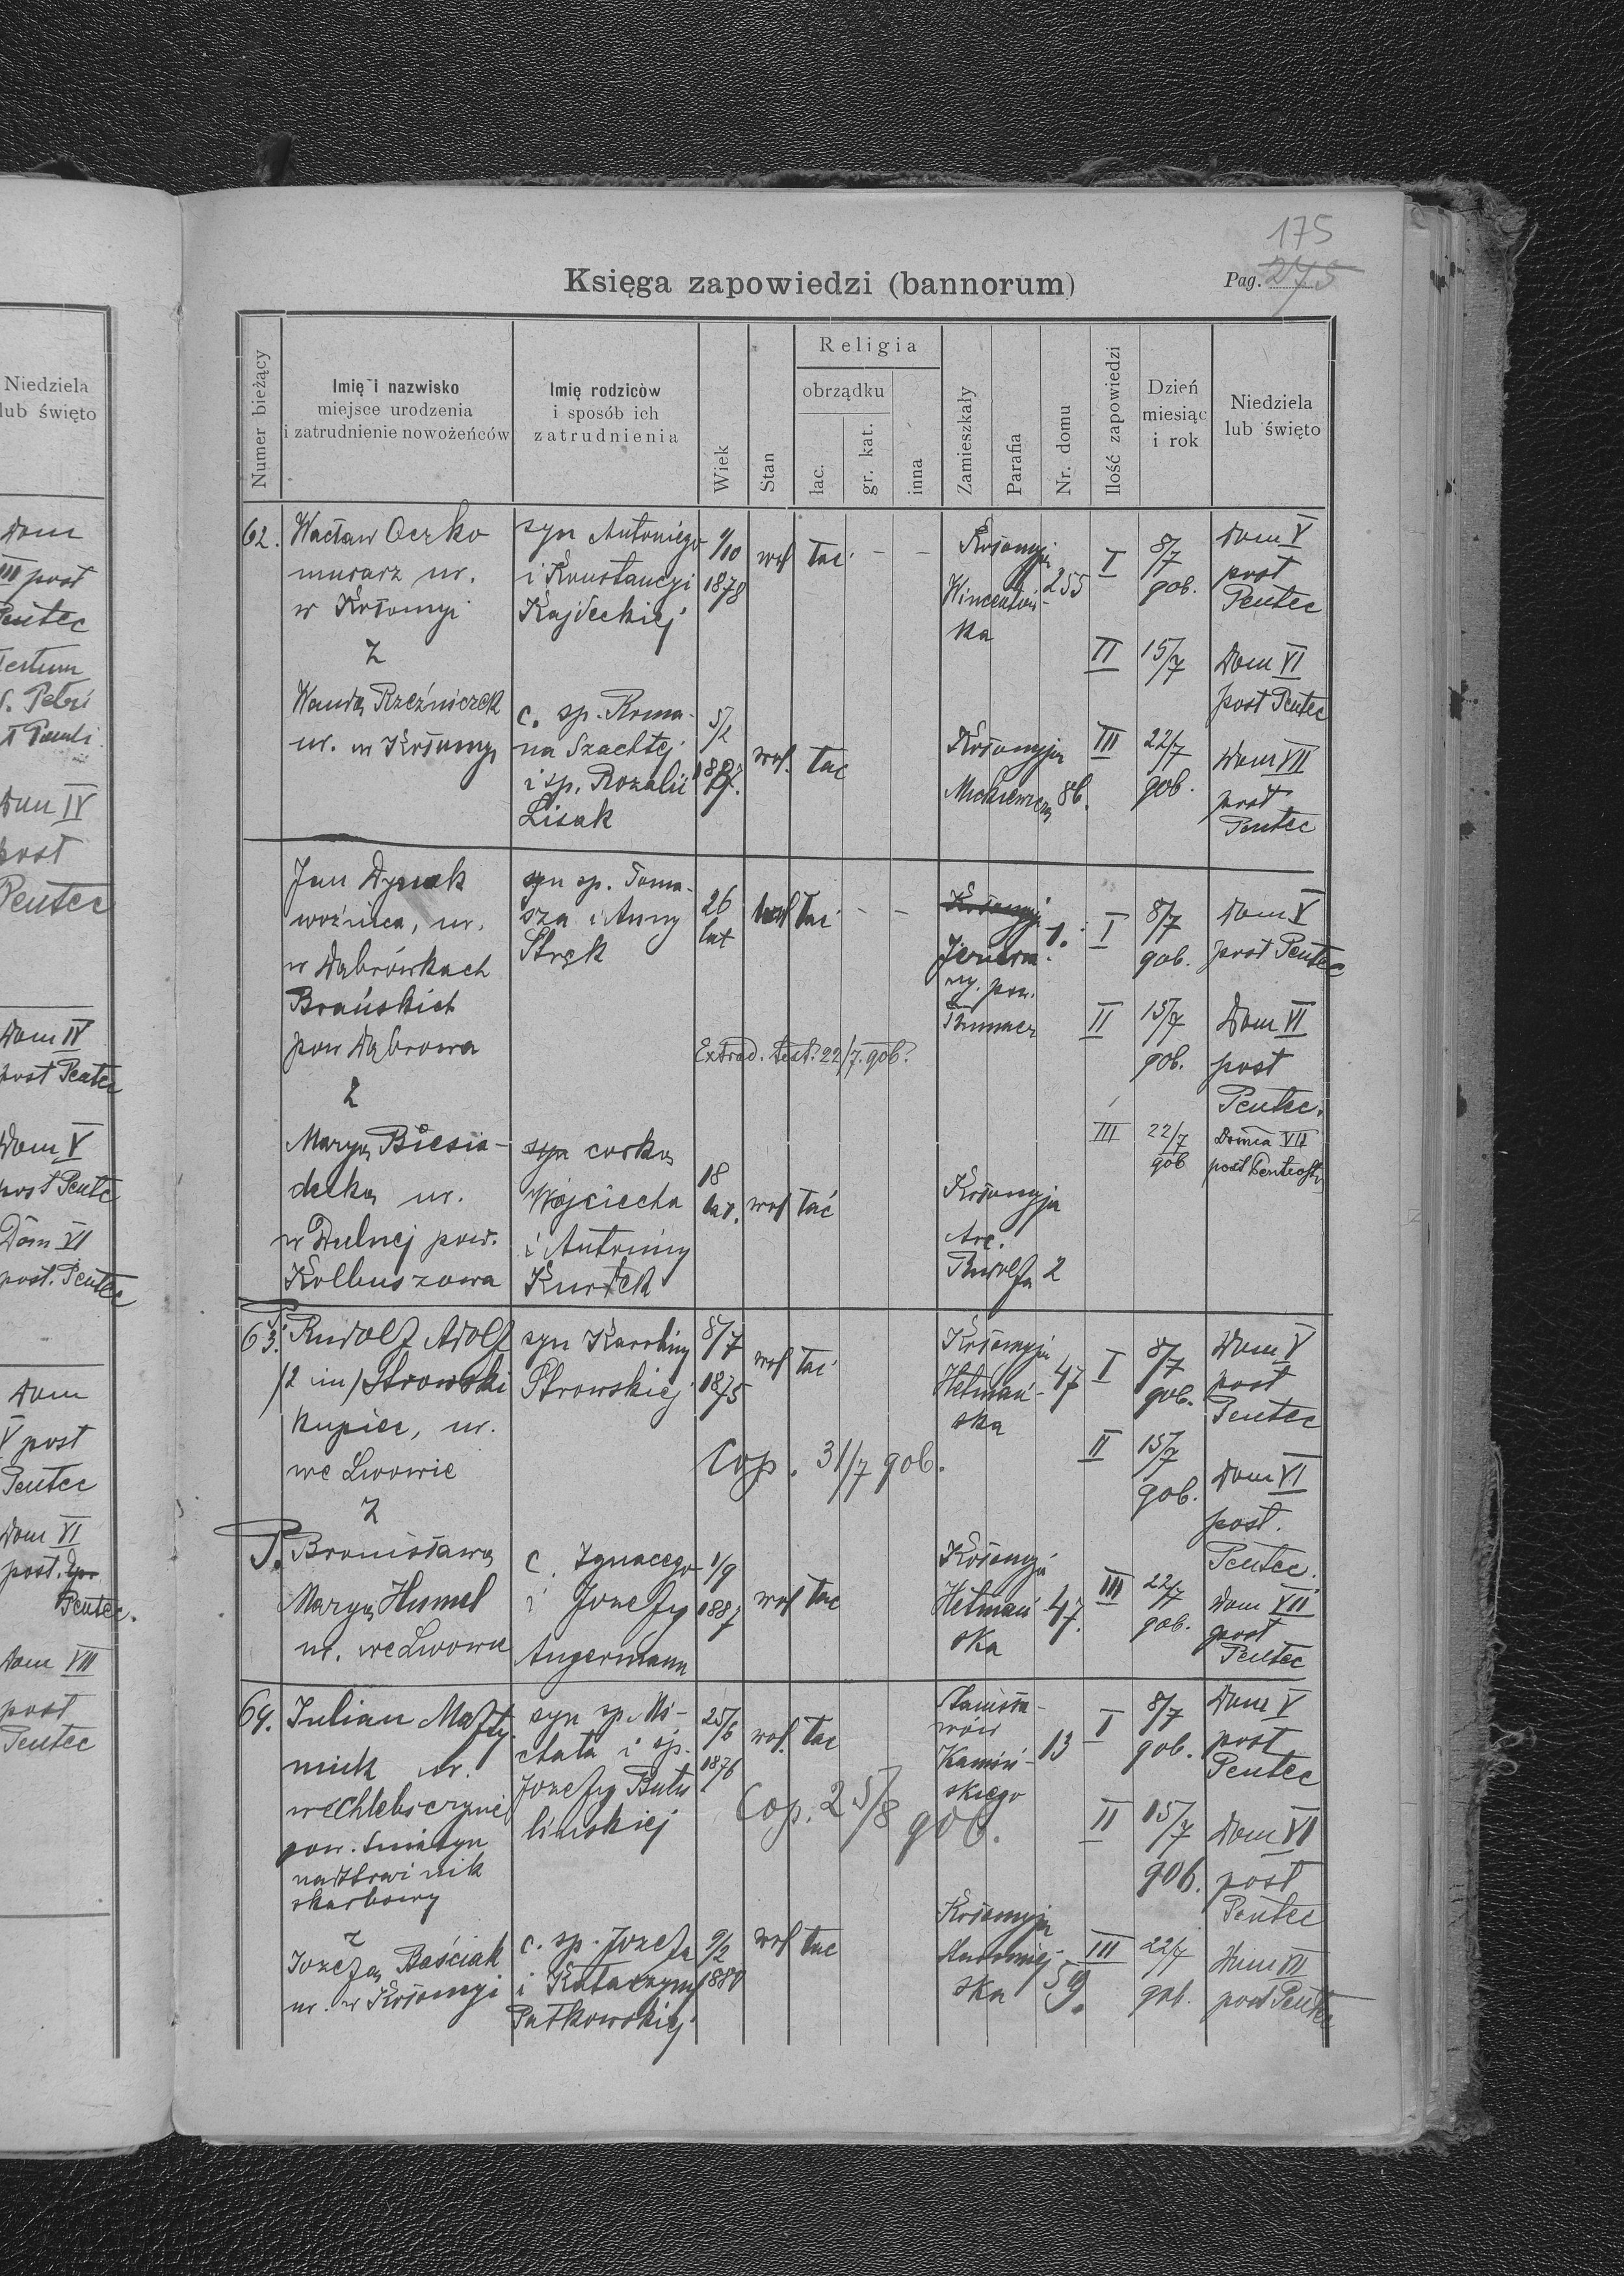 175
Księga zapowiedzi (bannorum)
Pag. 275
Numer bieżący
Imię i nazwisko
miejsce urodzenia
i zatrudnienie nowożeńców
Imię rodziców
i sposób ich
zatrudnienia
Wiek
Stan
Religia
obrządku
łac.
gr. kat.
inna
Zamieszkały
Parafia
Nr. domu
Ilość zapowiedzi
Dzień
miesiąc
i rok
Niedziela
lub święto
62.
Wacław Oczko
murarz ur.
w Kołomyi
z
Wanda Rzeźniczek
ur. w Kołomyi
syn Antoniego
i Konstancyi
Kajdeckiej
c. sp. Roma-
na Szachtej
i sp. Rozalii
Lisak
9/10
1878
wol łac - -
5/2
wol. łac
Kołomyja
Wincentow-
ska
255
Kołomyja
Mickiewicza 86.
I 8/7 906. Dom V
post
Pentec
II 15/7 Dom VI
post Pentec
III 22/7 906. Dom VII
post
Pentec
Jan Dynak
woźnica, ur.
w Dąbrówkach
Brańskich
pow Dąbrowa
z
Marya Biesia-
decka ur.
w Dulnej pow.
Kolbuszowa
syn sp. Toma-
sza i Anny
Stręk
26
lat
wol łac - -
Kołomyja
pow.
Tłumacz
1.
Extrad. test. 22/7. 906.
syn corka
Wojciecha
i Antoniny
Kurdek
18
lat. wol łac
Kołomyja
Arc.
Rudolfa 2
I 8/7 906. Dom V
post Pentec
II 15/7 906. Dom VI
post
Pentec.
III 22/7 906 Domca VII
post Pentecost
63.
Rudolf Adolf
/2 im/ Strowski
kupiec, ur.
we Lwowie
z
Bronisława
Marya Humel
ur. we Lwowie
syn Karoliny
Strowskiej
8/7
1875
wol łac
Cop. 31/7 906.
c. Ignacego
i Jozefy
Angermann
1/9
1887
wol łac
Kołomyja
Hetmań-
ska
47
Kołomyja
Hetmań
ska
47.
I 8/7 906. Dom V
post
Pentec
II 15/7 906. Dom VI
post.
Pentec.
III 22/7 906. Dom VII
post
Pentec
64.
Julian Matty
niuk ur.
we Chlebiczynie
pow. Śniatyn
nadstrażnik
skarbowy
z
Jozefa Baściak
ur. w Kołomyi
syn sp. Mi-
chała i sp.
Jozefy Butu
linskiej
25/6
1876
wol. łac
Cop. 25/8 906.
c. sp. Jozefa
i Katarzyny
Patkowskiej
9/2
1880
wol łac
Stanisła-
wów
Kamiń-
skiego
13
Kołomyja
ska
59.
I 8/7 906. Dom V
post
Pentec
II 15/7 906. Dom VI
post
Pentec
III 22/7 906. Dom VII
post Pentec
Niedziela
lub święto
Dom
III post
Pentec
Festum
S. Petri
et Pauli
Dom IV
post
Pentec
Dom IV
post Pentec
Dom V
post Pentec
Dom VI
post. Pentec
Dom
V post
Pentec
Dom VI
post.
Pentec.
Dom VII
post
Pentec